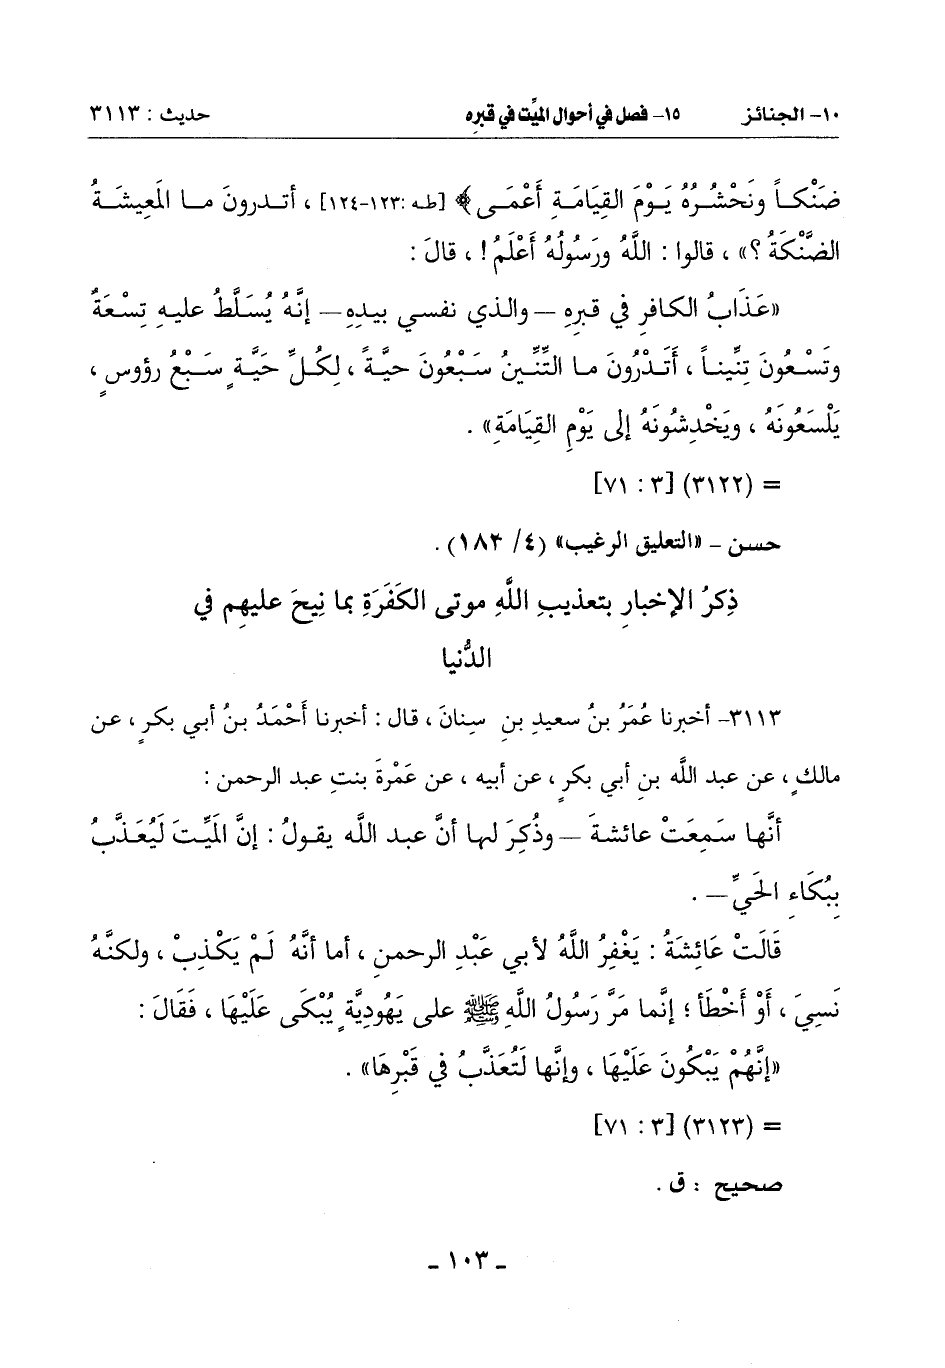 ١٠- الجنائز ١٥- فصل في أحوال الميِّت في قبره حديث : ٣١١٣
ضَنْكـاً ونَحْشُـرُهُ يَـوْمَ القِيَامَـةِ أَعْمَـى﴾ [طـه :١٢٣-١٢٤] ، أتـدرونَ مـا المَعِيشَـةُ
الضَّنْكَةُ ؟» ، قالوا : اللَّهُ ورَسُولُهُ أَعْلَمُ ! ، قالَ :
«عَذَابُ الكافرِ في قبرِهِ – والذي نفسي بيدِهِ – إنَّهُ يُسَلَّطُ عليهِ تِسْعَةٌ
وتَسْعُونَ تِنِّيناً ، أَتَدْرُونَ ما التِّنِّينُ سَبْعُونَ حيَّةً ، لِكُلِّ حَيَّةٍ سَبْعُ رؤوسٍ ،
يَلْسَعُونَهُ ، ويَخْدِشُونَهُ إلى يَوْمِ القِيَامَةِ» .
= (٣١٢٢) [٣ : ٧١]
حسن – «التعليق الرغيب» (٤/ ١٨٣) .
ذِكرُ الإخبارِ بتعذيبِ اللَّهِ موتى الكَفَرَةِ بما نِيحَ عليهِم في
الدُّنيا
٣١١٣- أخبرنا عُمَرُ بنُ سعيدِ بنِ سِنانَ ، قال : أخبرنا أَحْمَدُ بنُ أبي بكرٍ ، عن
مالكٍ ، عن عبد اللَّه بنِ أبي بكرٍ ، عن أبيه ، عن عَمْرَةَ بنتِ عبد الرحمن :
أنَّها سَمِعَتْ عائشةَ – وذُكِرَ لها أنَّ عبد اللَّه يقولُ : إنَّ المَيِّتَ لَيُعَذَّبُ
بِبُكَاءِ الحَيِّ – .
قَالَتْ عَائِشَةُ : يَغْفِرُ اللَّهُ لأبي عَبْدِ الرحمنِ ، أما أنَّهُ لَمْ يَكْذِبْ ، ولكنَّهُ
نَسِيَ ، أَوْ أَخْطَأ ؛ إنَّما مَرَّ رَسُولُ اللَّهِ ﷺ على يَهُودِيَّةٍ يُبْكَى عَلَيْهَا ، فَقَالَ :
«إنَّهُمْ يَبْكُونَ عَلَيْهَا ، وإنَّها لَتُعَذَّبُ في قَبْرِهَا» .
= (٣١٢٣) [٣ : ٧١]
صحيح : ق .
- ١٠٣ -